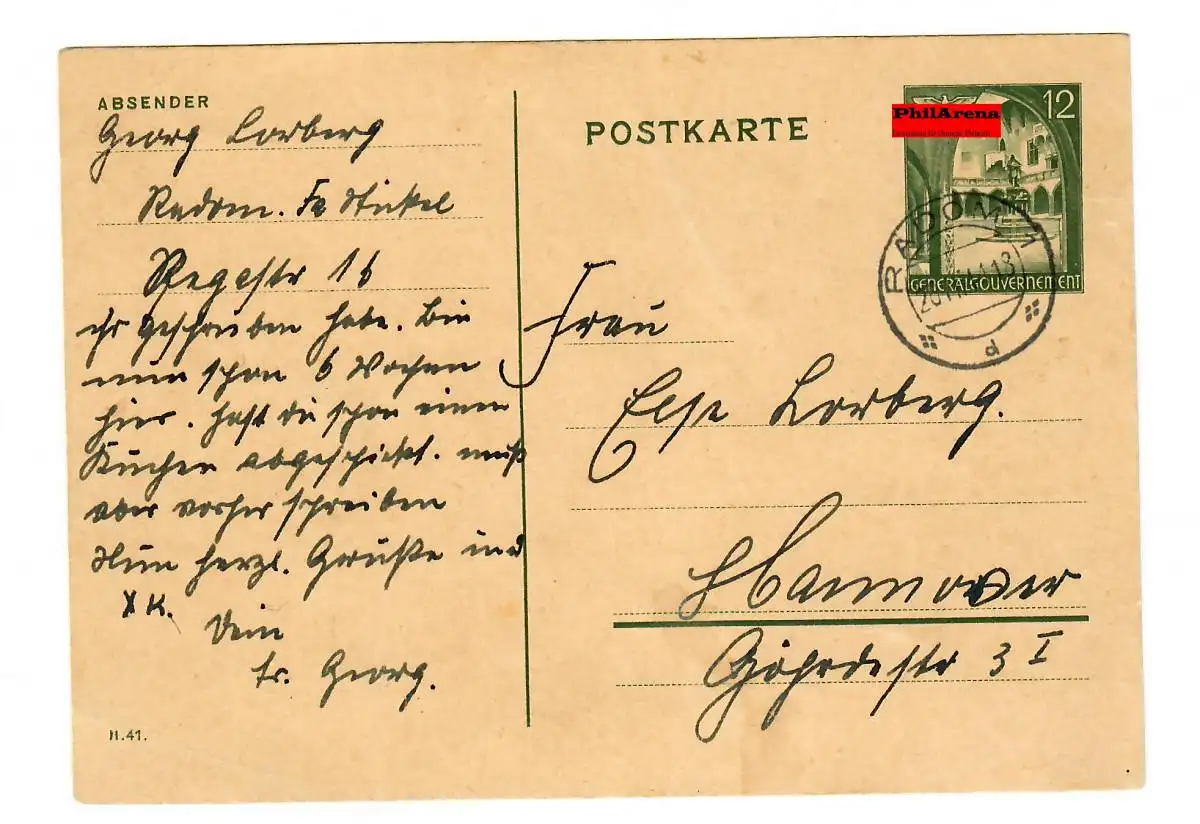 ABSENDER
Georg Lorberg
Radom. Fa Stickel
Regestr 16
ihr geschrieben habe. Bin
nun schon 6 Wochen
hier. Hast du schon einen
Kuchen abgeschickt. muß
aber vorher schreiben
Nun herzl. Grüße und
K.
Dein
tr. Georg.
II.41.
POSTKARTE
12
PhilArena
GENERALGOUVERNEMENT
RADOM 1
d
Frau
Else Lorberg.
Hannover
Göhrdestr 3 I